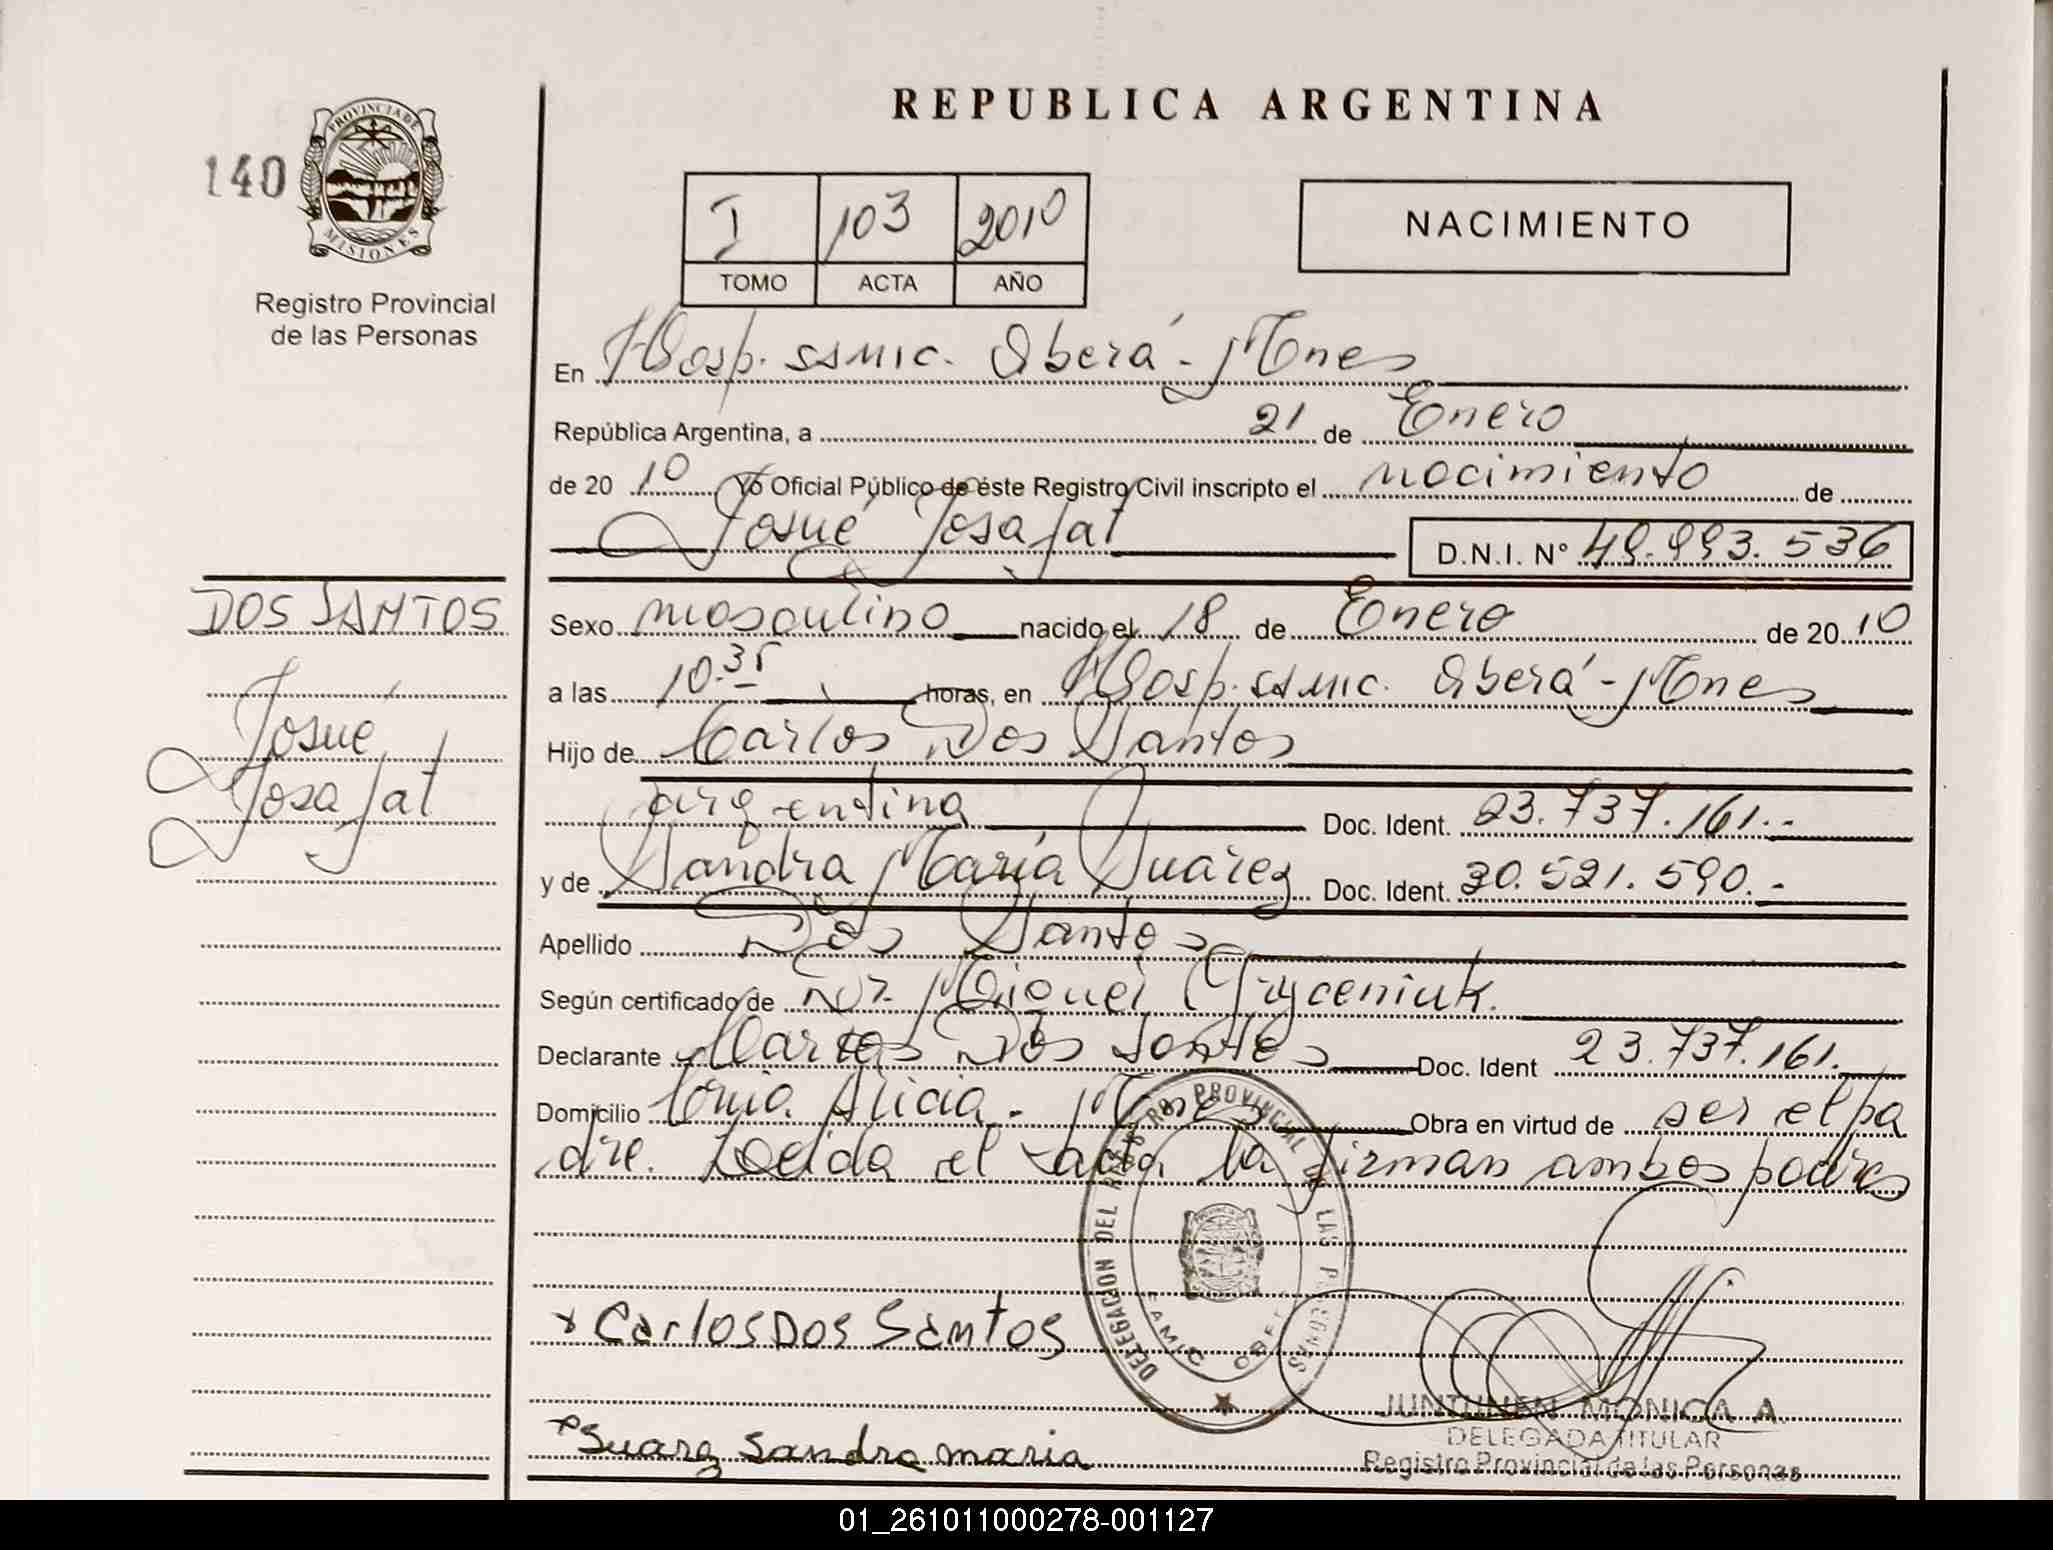 REPUBLICA ARGENTINA
140
PROVINCIA DE
MISIONES
Registro Provincial
de las Personas
I 103 2010
TOMO ACTA AÑO
NACIMIENTO
En Hosp. SAMIC. Oberá - Mnes
República Argentina, a 21 de Enero
de 20 10 Yo Oficial Público de éste Registro Civil inscripto el nacimiento de
Josué Josafat D.N.I. N° 49.993.536
DOS SANTOS
Josué
Josafat
Sexo masculino nacido el 18 de Enero de 20 10
a las 10.35 horas, en Hosp. SAMIC. Oberá - Mnes
Hijo de Carlos Dos Santos
argentina Doc. Ident. 23.737.161.-
y de Sandra María Suárez Doc. Ident. 30.521.590.-
Apellido Dos Santos
Según certificado de Dr. Miguel Gryceniuk.
Declarante Carlos Dos Santos Doc. Ident 23.737.161.
Domicilio Alicia - Mnes Obra en virtud de ser el pa
dre. Leída el acta la firman ambos padres
DELEGACION DEL REGISTRO PROVINCIAL DE LAS PERSONAS
SAMIC OBERA
x Carlos Dos Santos
Suarez Sandra maria
JUNTUNEN MONICA A.
DELEGADA TITULAR
Registro Provincial de las Personas
01_261011000278-001127